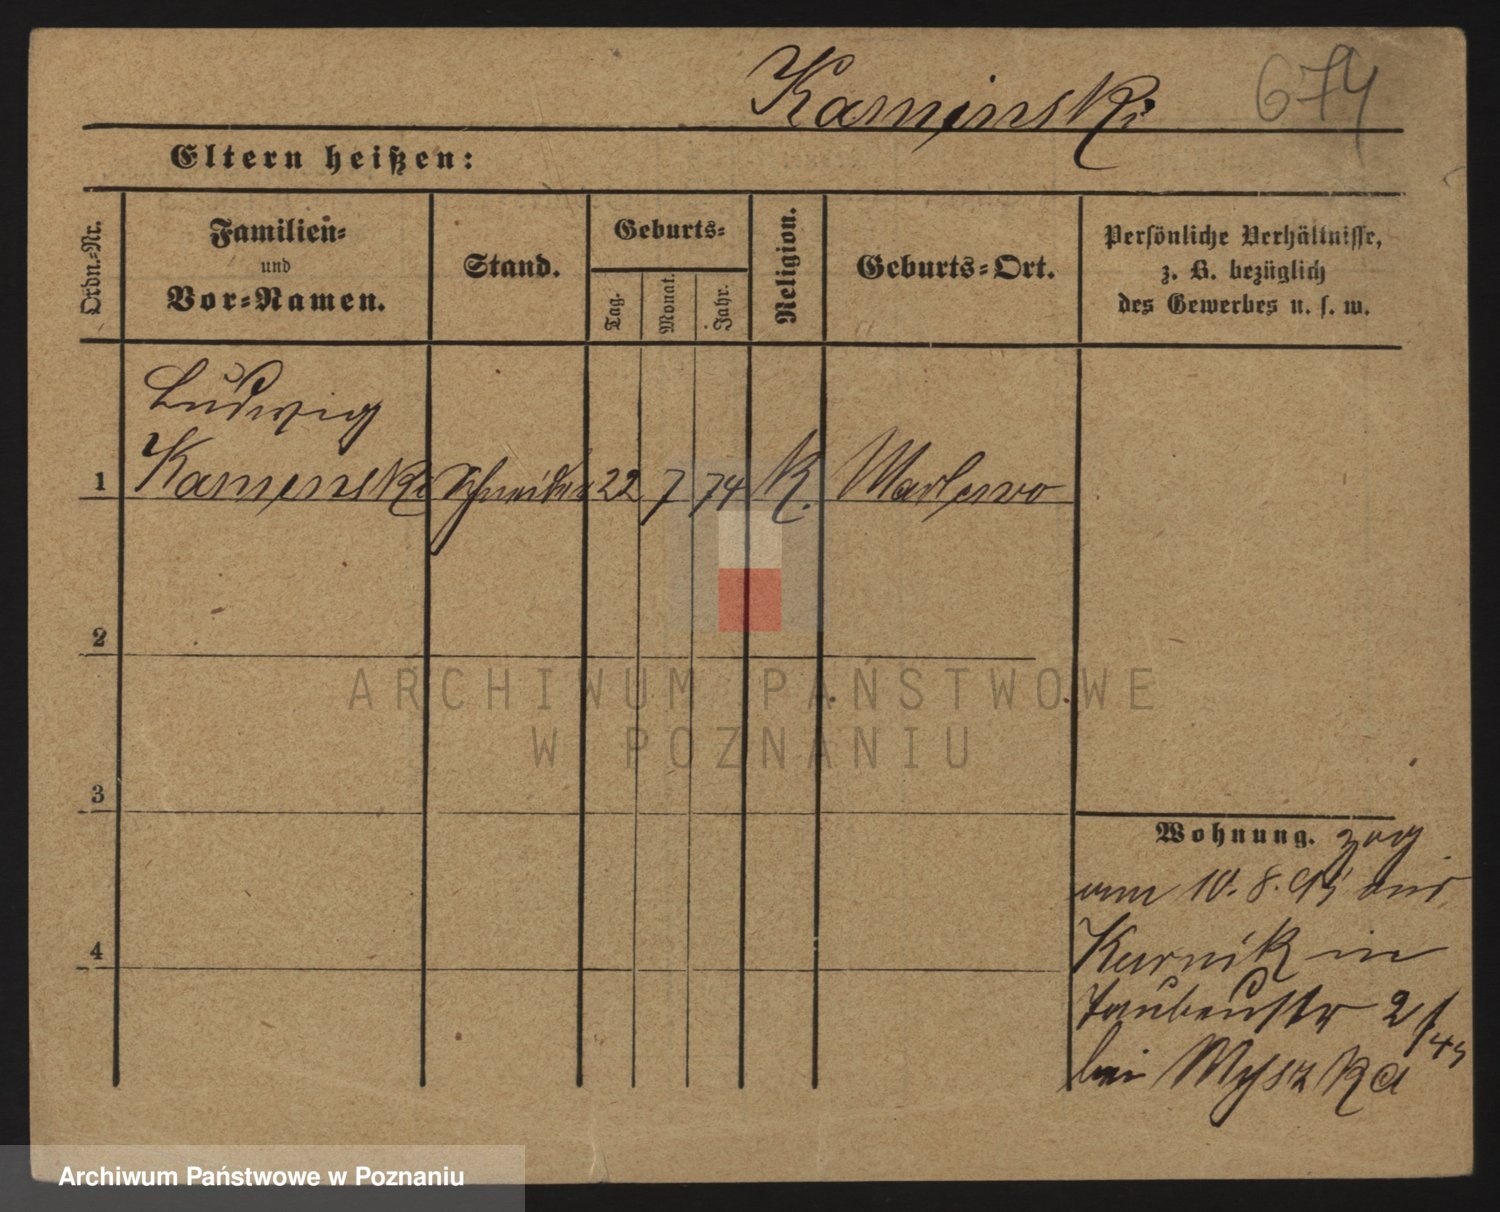 Kaminski 674
Eltern heißen:
Ordn.-Nr.
Familien-
und
Vor-Namen.
Stand.
Geburts-
Tag.
Monat.
Jahr.
Religion.
Geburts-Ort.
Persönliche Verhältnisse,
z. B. bezüglich
des Gewerbes u. s. w.
Ludwig
1 Kaminski Schneider 22 7 74 K.
2
ARCHIWUM PAŃSTWOWE
W POZNANIU
3
Wohnung. zog
am 10. 8. 95 aus
Kurnik in
Taubenstr 2
bei Myszka
4
Archiwum Państwowe w Poznaniu